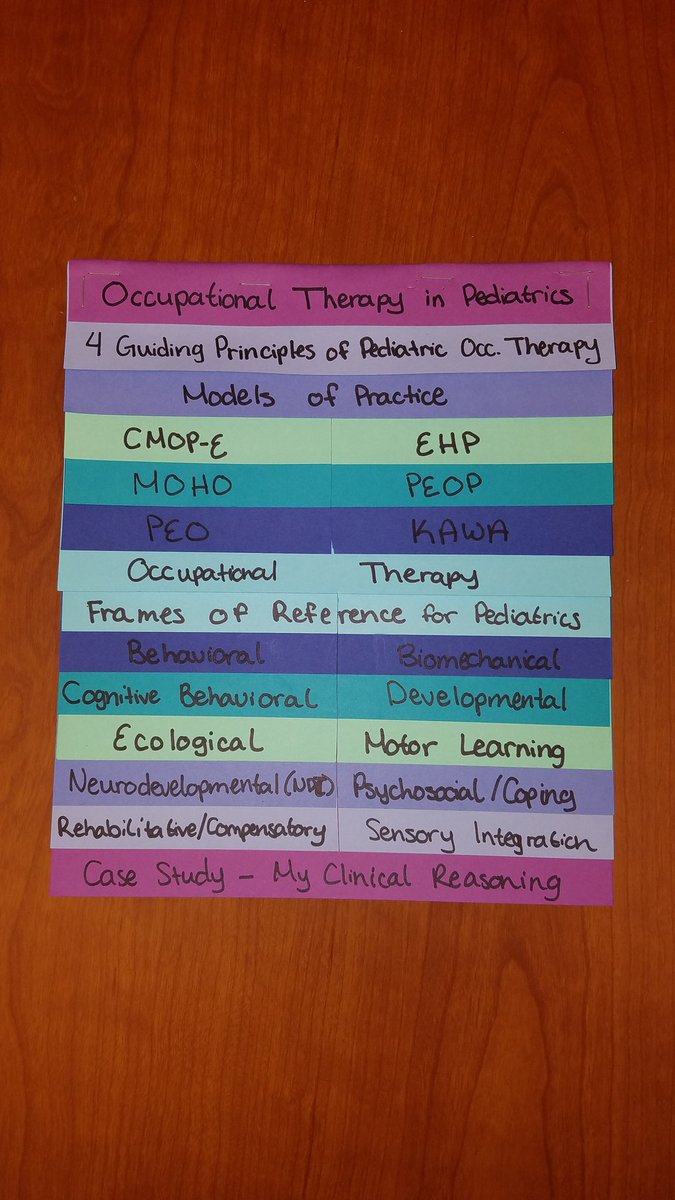 Occupational Therapy in Pediatrics
4 Guiding Principles of Pediatric Occ. Therapy
Models of Practice
CMOP-E EHP
MOHO PEOP
PEO KAWA
Occupational Therapy
Frames of Reference for Pediatrics
Behavioral Biomechanical
Cognitive Behavioral Developmental
Ecological Motor Learning
Neurodevelopmental (NDT) Psychosocial/Coping
Rehabilitative/Compensatory Sensory Integration
Case Study - My Clinical Reasoning